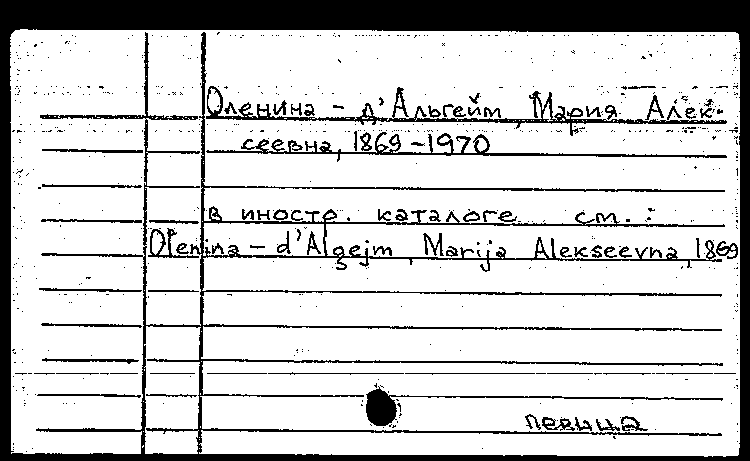 Оленина - д'Альгейм, Мария Алек-
сеевна, 1869-1970
в иностр. каталоге см.:
Olenina - d'Algejm, Marija Alekseevna, 1869
певица